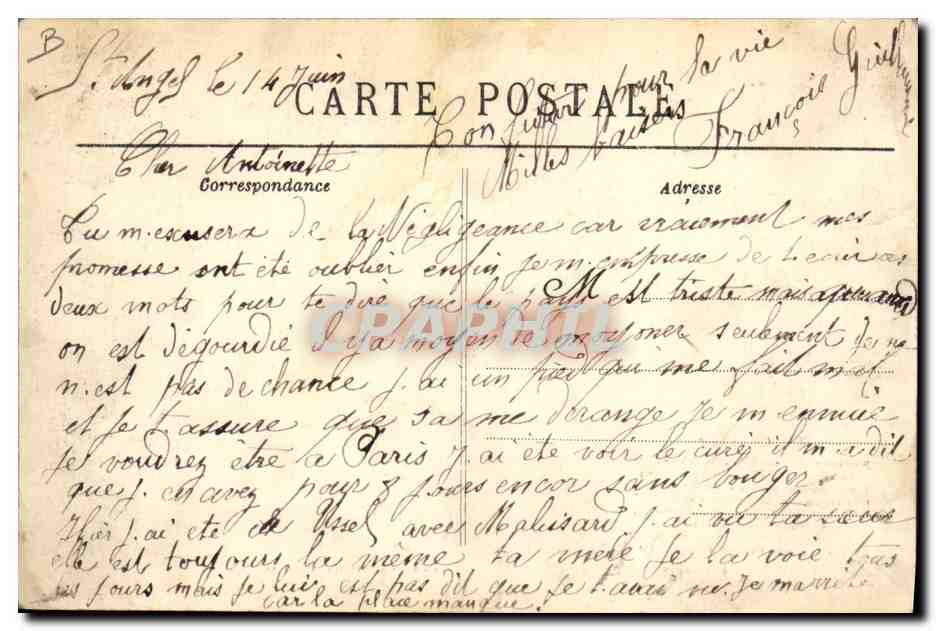 B
St Angel le 14 Juin
CARTE POSTALE
Ton futur pour la vie
Milles baisers
François
Cher Antoinette
Correspondance
Adresse
Tu m.escusera de la Négligeance car vraiement mes
promesse ont été oublier enfin je m.empresse de t.ecrire ces
deux mots pour te dire que le pays M est triste mais quand
on est dégourdie il y a moyen de moyoner seulement je ne
n.est pas de chance j.ai un pied qui me fait mal
et je t.assure que sa me derange je m.ennuie
je voudrez être a Paris j.ai été voir le curez il m.a dit
que j.en avez pour 8 jours encor sans bouger
Hier j.ai été a Ussel avec Malissard j.ai vu ta sœur
elle est toujours la même ta mere je la voie tous
les jours mais je lui est pas dit que je t.avai vu. Je marrete
car la place manque.
CPAPHIL